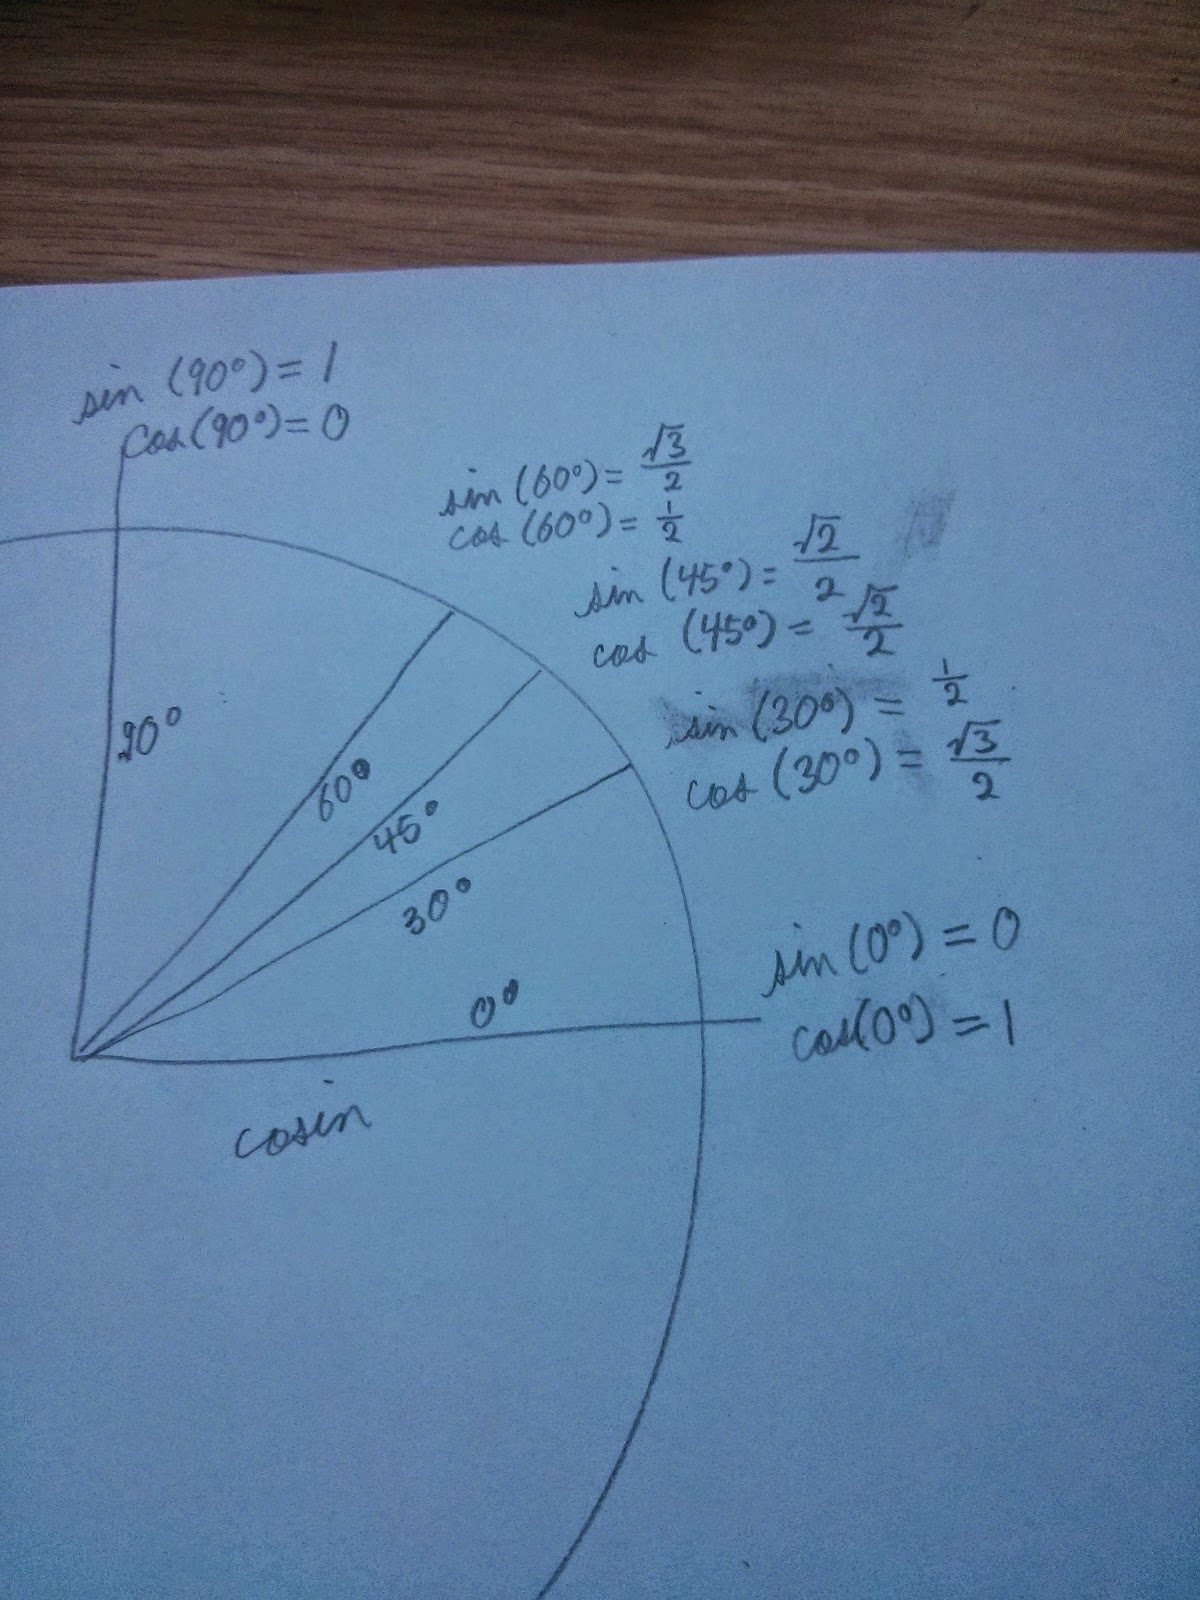 sin (90°) = 1
cos (90°) = 0
sin (60°) = √3/2
cos (60°) = 1/2
sin (45°) = √2/2
cos (45°) = √2/2
sin (30°) = 1/2
cos (30°) = √3/2
90°
60°
45°
30°
0°
sin (0°) = 0
cos (0°) = 1
cosin